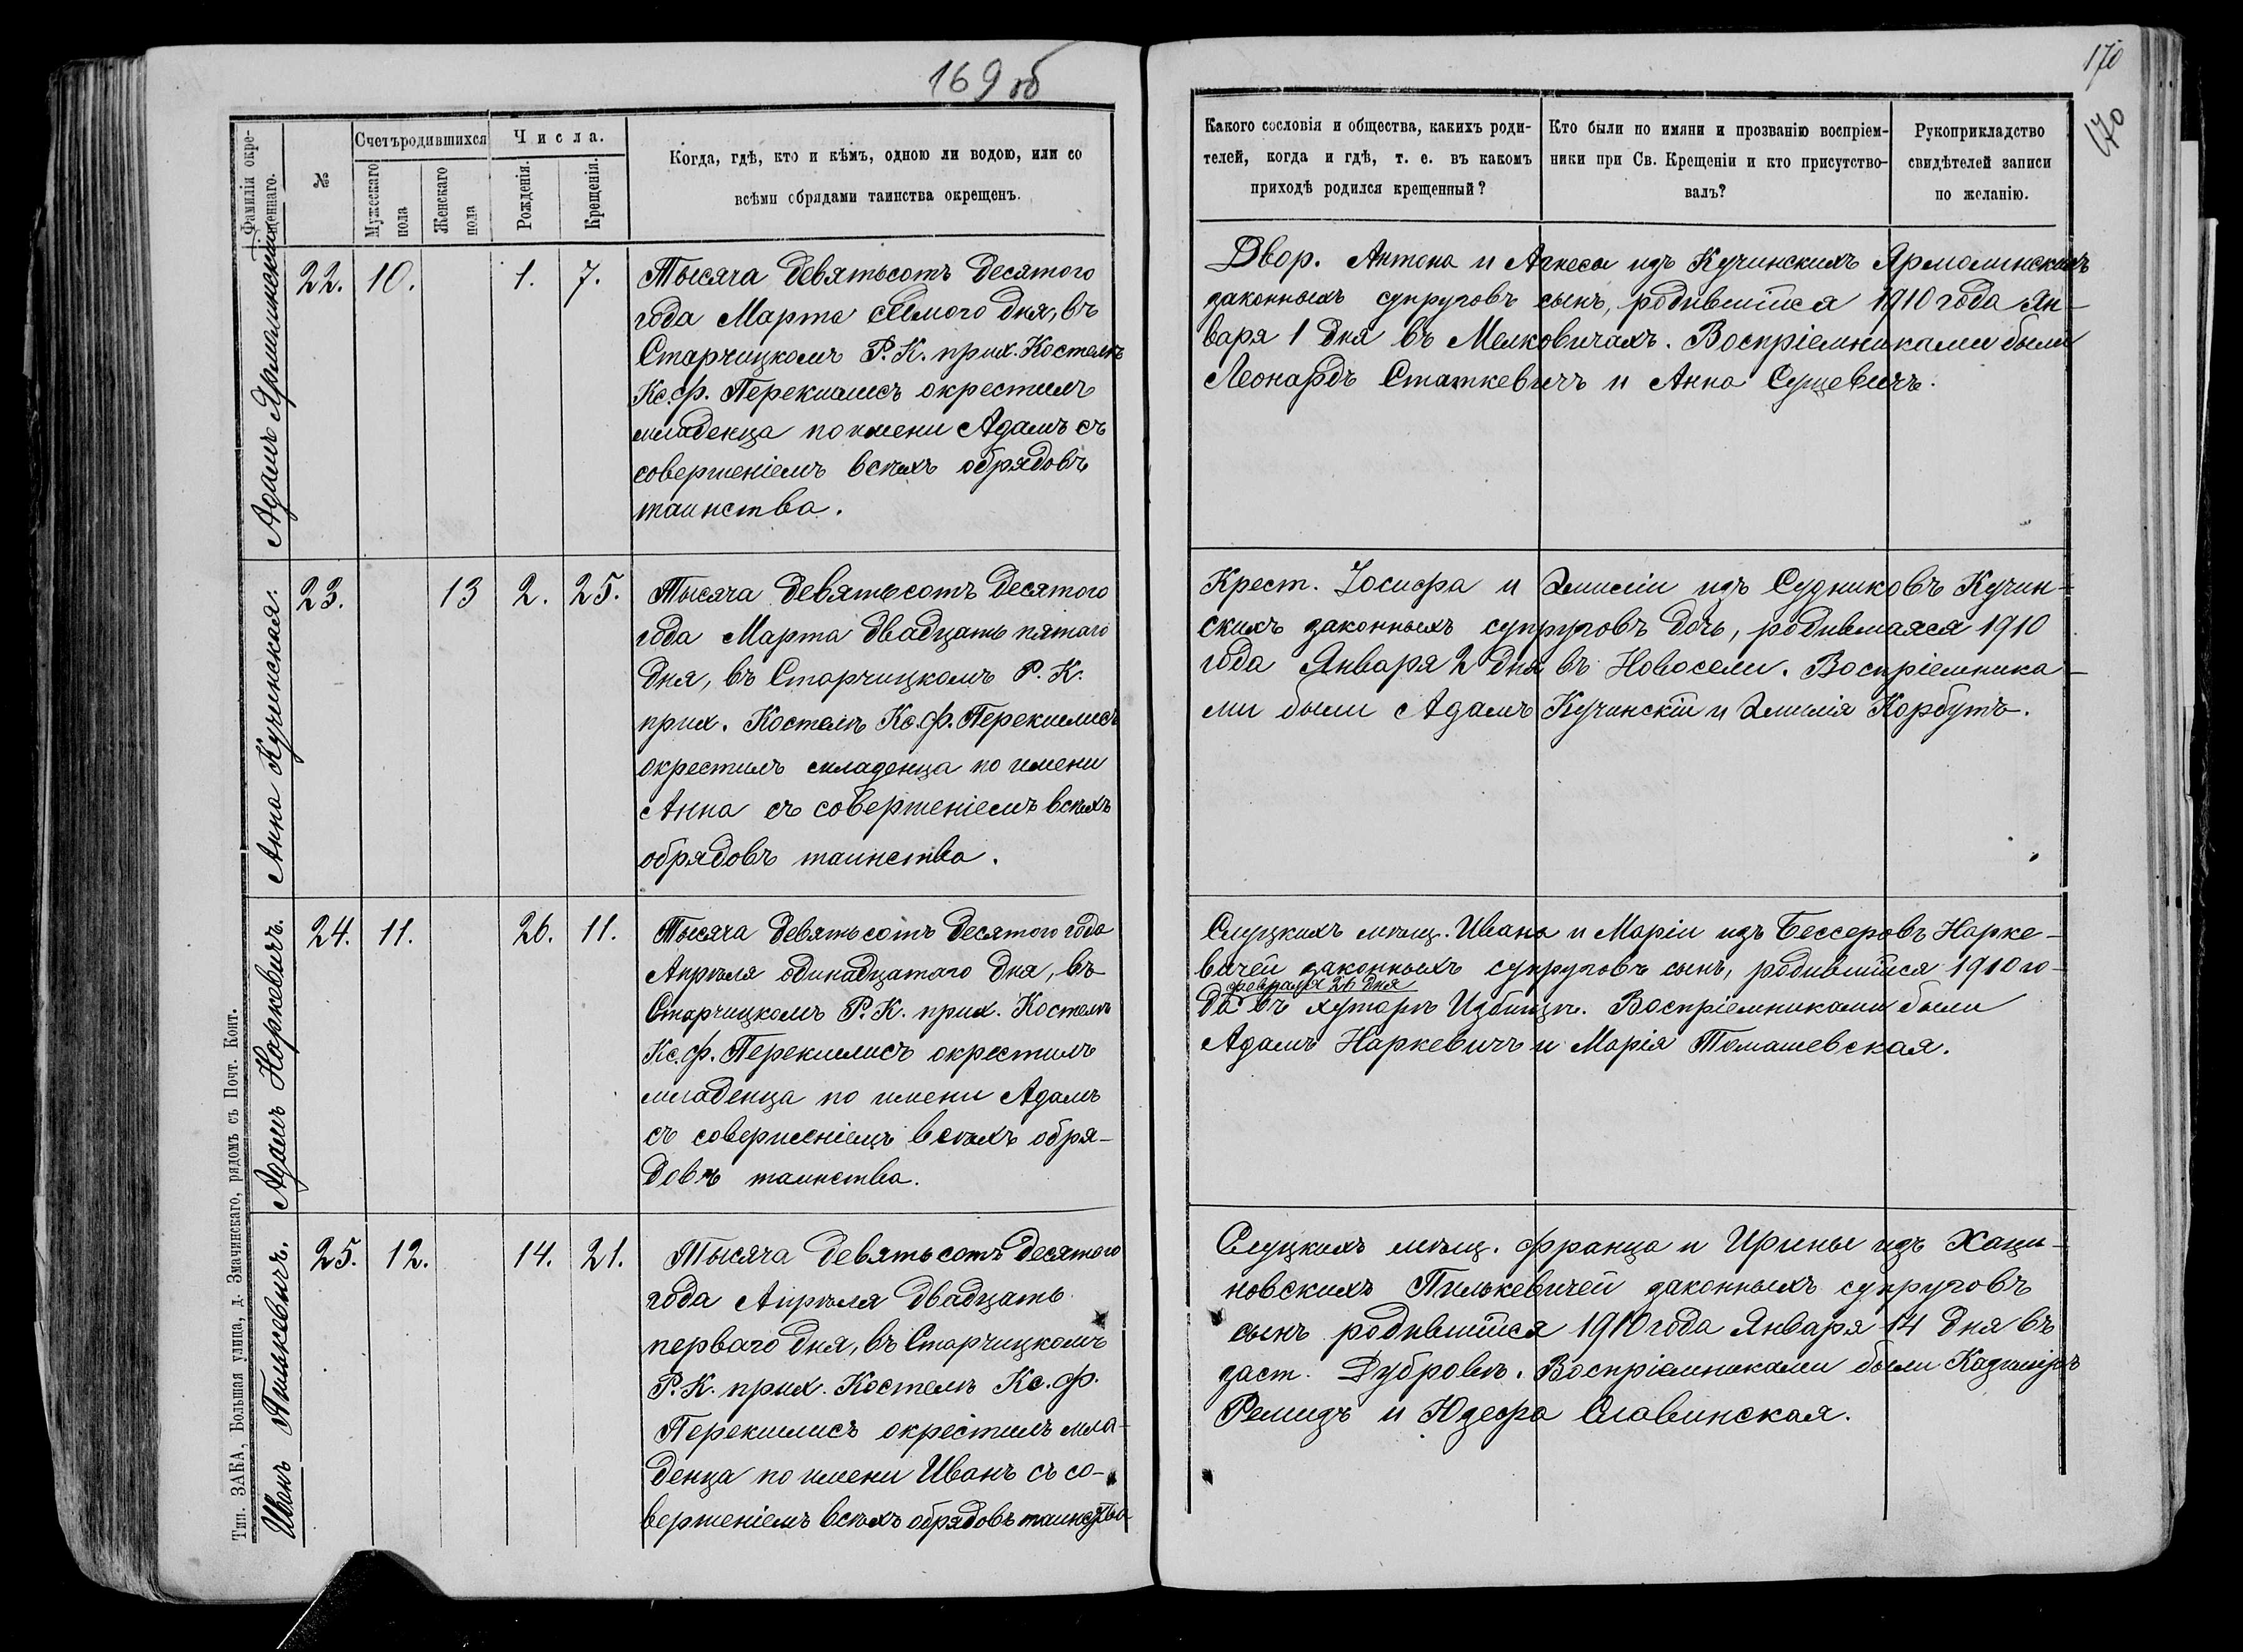 169 об
170
170
Фамилія окре-
щеннаго.
№
Счетъ родившихся
Мужескаго
пола
Женскаго
пола
Числа.
Рожденія.
Крещенія.
Когда, гдѣ, кто и кѣмъ, одною ли водою, или со
всѣми обрядами таинства окрещенъ.
Какого сословія и общества, какихъ роди-
телей, когда и гдѣ, т. е. въ какомъ
приходѣ родился крещенный?
Кто были по имяни и прозванію воспріем-
ники при Св. Крещеніи и кто присутство-
валъ?
Рукоприкладство
свидѣтелей записи
по желанію.
Адамъ Ярмолинскій
22. 10. 1. 7.
Тысяча девятьсотъ десятого
года Марта седмого дня, въ
Старчицкомъ Р. К. прих. Костелѣ
Кс. Ф. Перекшлисъ окрестилъ
младенца по имени Адамъ съ
совершеніемъ всѣхъ обрядовъ
таинства.
Двор. Антона и Агнесы изъ Кучинскихъ Ярмолинскихъ
законныхъ супруговъ сынъ, родившійся 1910 года Ян-
варя 1 дня въ Мелковичахъ. Воспріемниками были
Леонардъ Статкевичъ и Анна Сущевичъ.
Анна Кучинская.
23. 13 2. 25.
Тысяча девятьсотъ десятого
года Марта двадцать пятаго
дня, въ Старчицкомъ Р. К.
прих. Костелѣ Кс. Ф. Перекшлисъ
окрестилъ младенца по имени
Анна съ совершеніемъ всѣхъ
обрядовъ таинства.
Крест. Іосифа и Эмиліи изъ Судниковъ Кучин-
скихъ законныхъ супруговъ дочь, родившаяся 1910
года Января 2 дня въ Новосели. Воспріемника-
ми были Адамъ Кучинскій и Эмилія Корбутъ.
Адамъ Наркевичъ.
24. 11. 26. 11.
Тысяча девятьсотъ десятого года
Апрѣля одинадцатаго дня, въ
Старчицкомъ Р. К. прих. Костелѣ
Кс. Ф. Перекшлисъ окрестилъ
младенца по имени Адамъ
съ совершеніемъ всѣхъ обря-
довъ таинства.
Слуцкихъ мѣщ. Ивана и Маріи изъ Бессеровъ Нарке-
вичей законныхъ супруговъ сынъ, родившійся 1910 го-
февраля 26 дня
да въ хуторѣ Избищѣ. Воспріемниками были
Адамъ Наркевичъ и Марія Томашевская.
Иванъ Пилькевичъ.
25. 12. 14. 21.
Тысяча девятьсотъ десятого
года Апрѣля двадцать
перваго дня, въ Старчицкомъ
Р. К. прих. Костелѣ Кс. Ф.
Перекшлисъ окрестилъ мла-
денца по имени Иванъ съ со-
вершеніемъ всѣхъ обрядовъ таинства
Слуцкихъ мѣщ. Франца и Ирины изъ Хаци-
новскихъ Пилькевичей законныхъ супруговъ
сынъ родившійся 1910 года Января 14 дня въ
заст. Дубровѣ. Воспріемниками были Казиміръ
Ремизъ и Юзефа Славинская.
Тип. ЗАКА, Большая улица, д. Змачинскаго, рядомъ съ Почт. Конт.